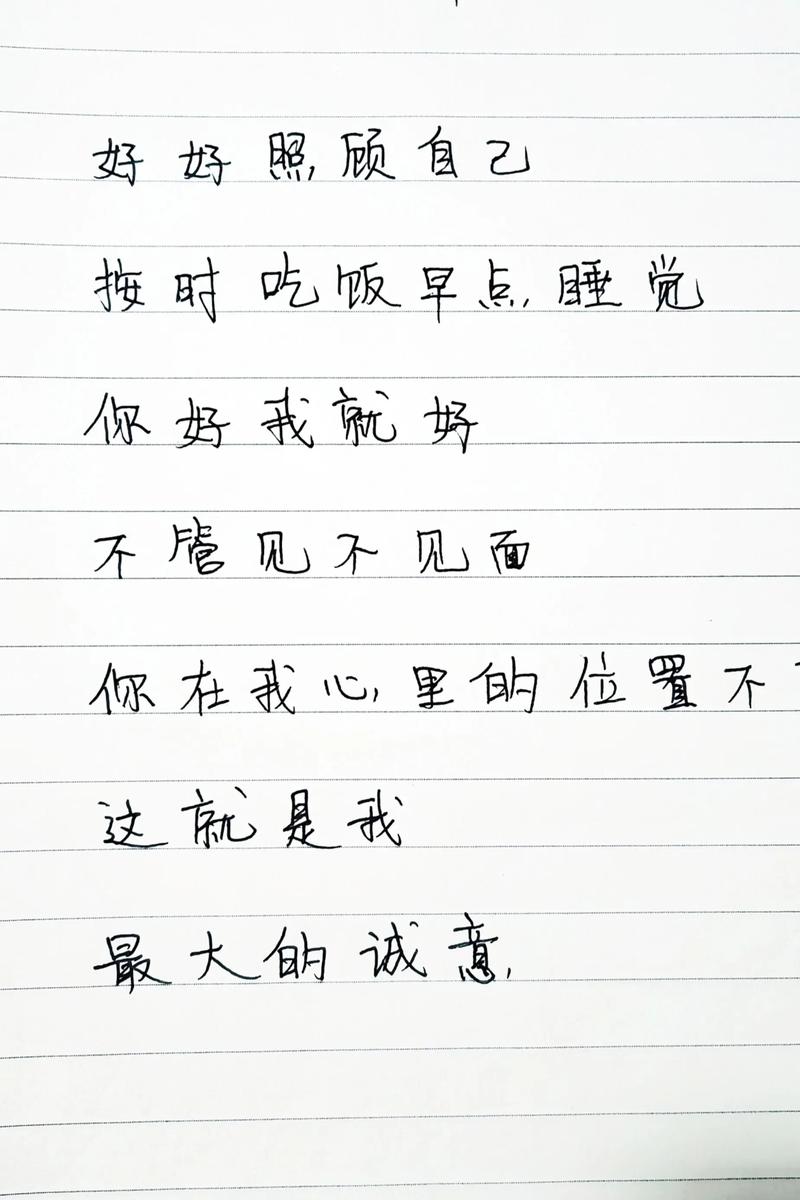 好好照顾自己
按时吃饭早点睡觉
你好我就好
不管见不见面
你在我心里的位置不
这就是我
最大的诚意